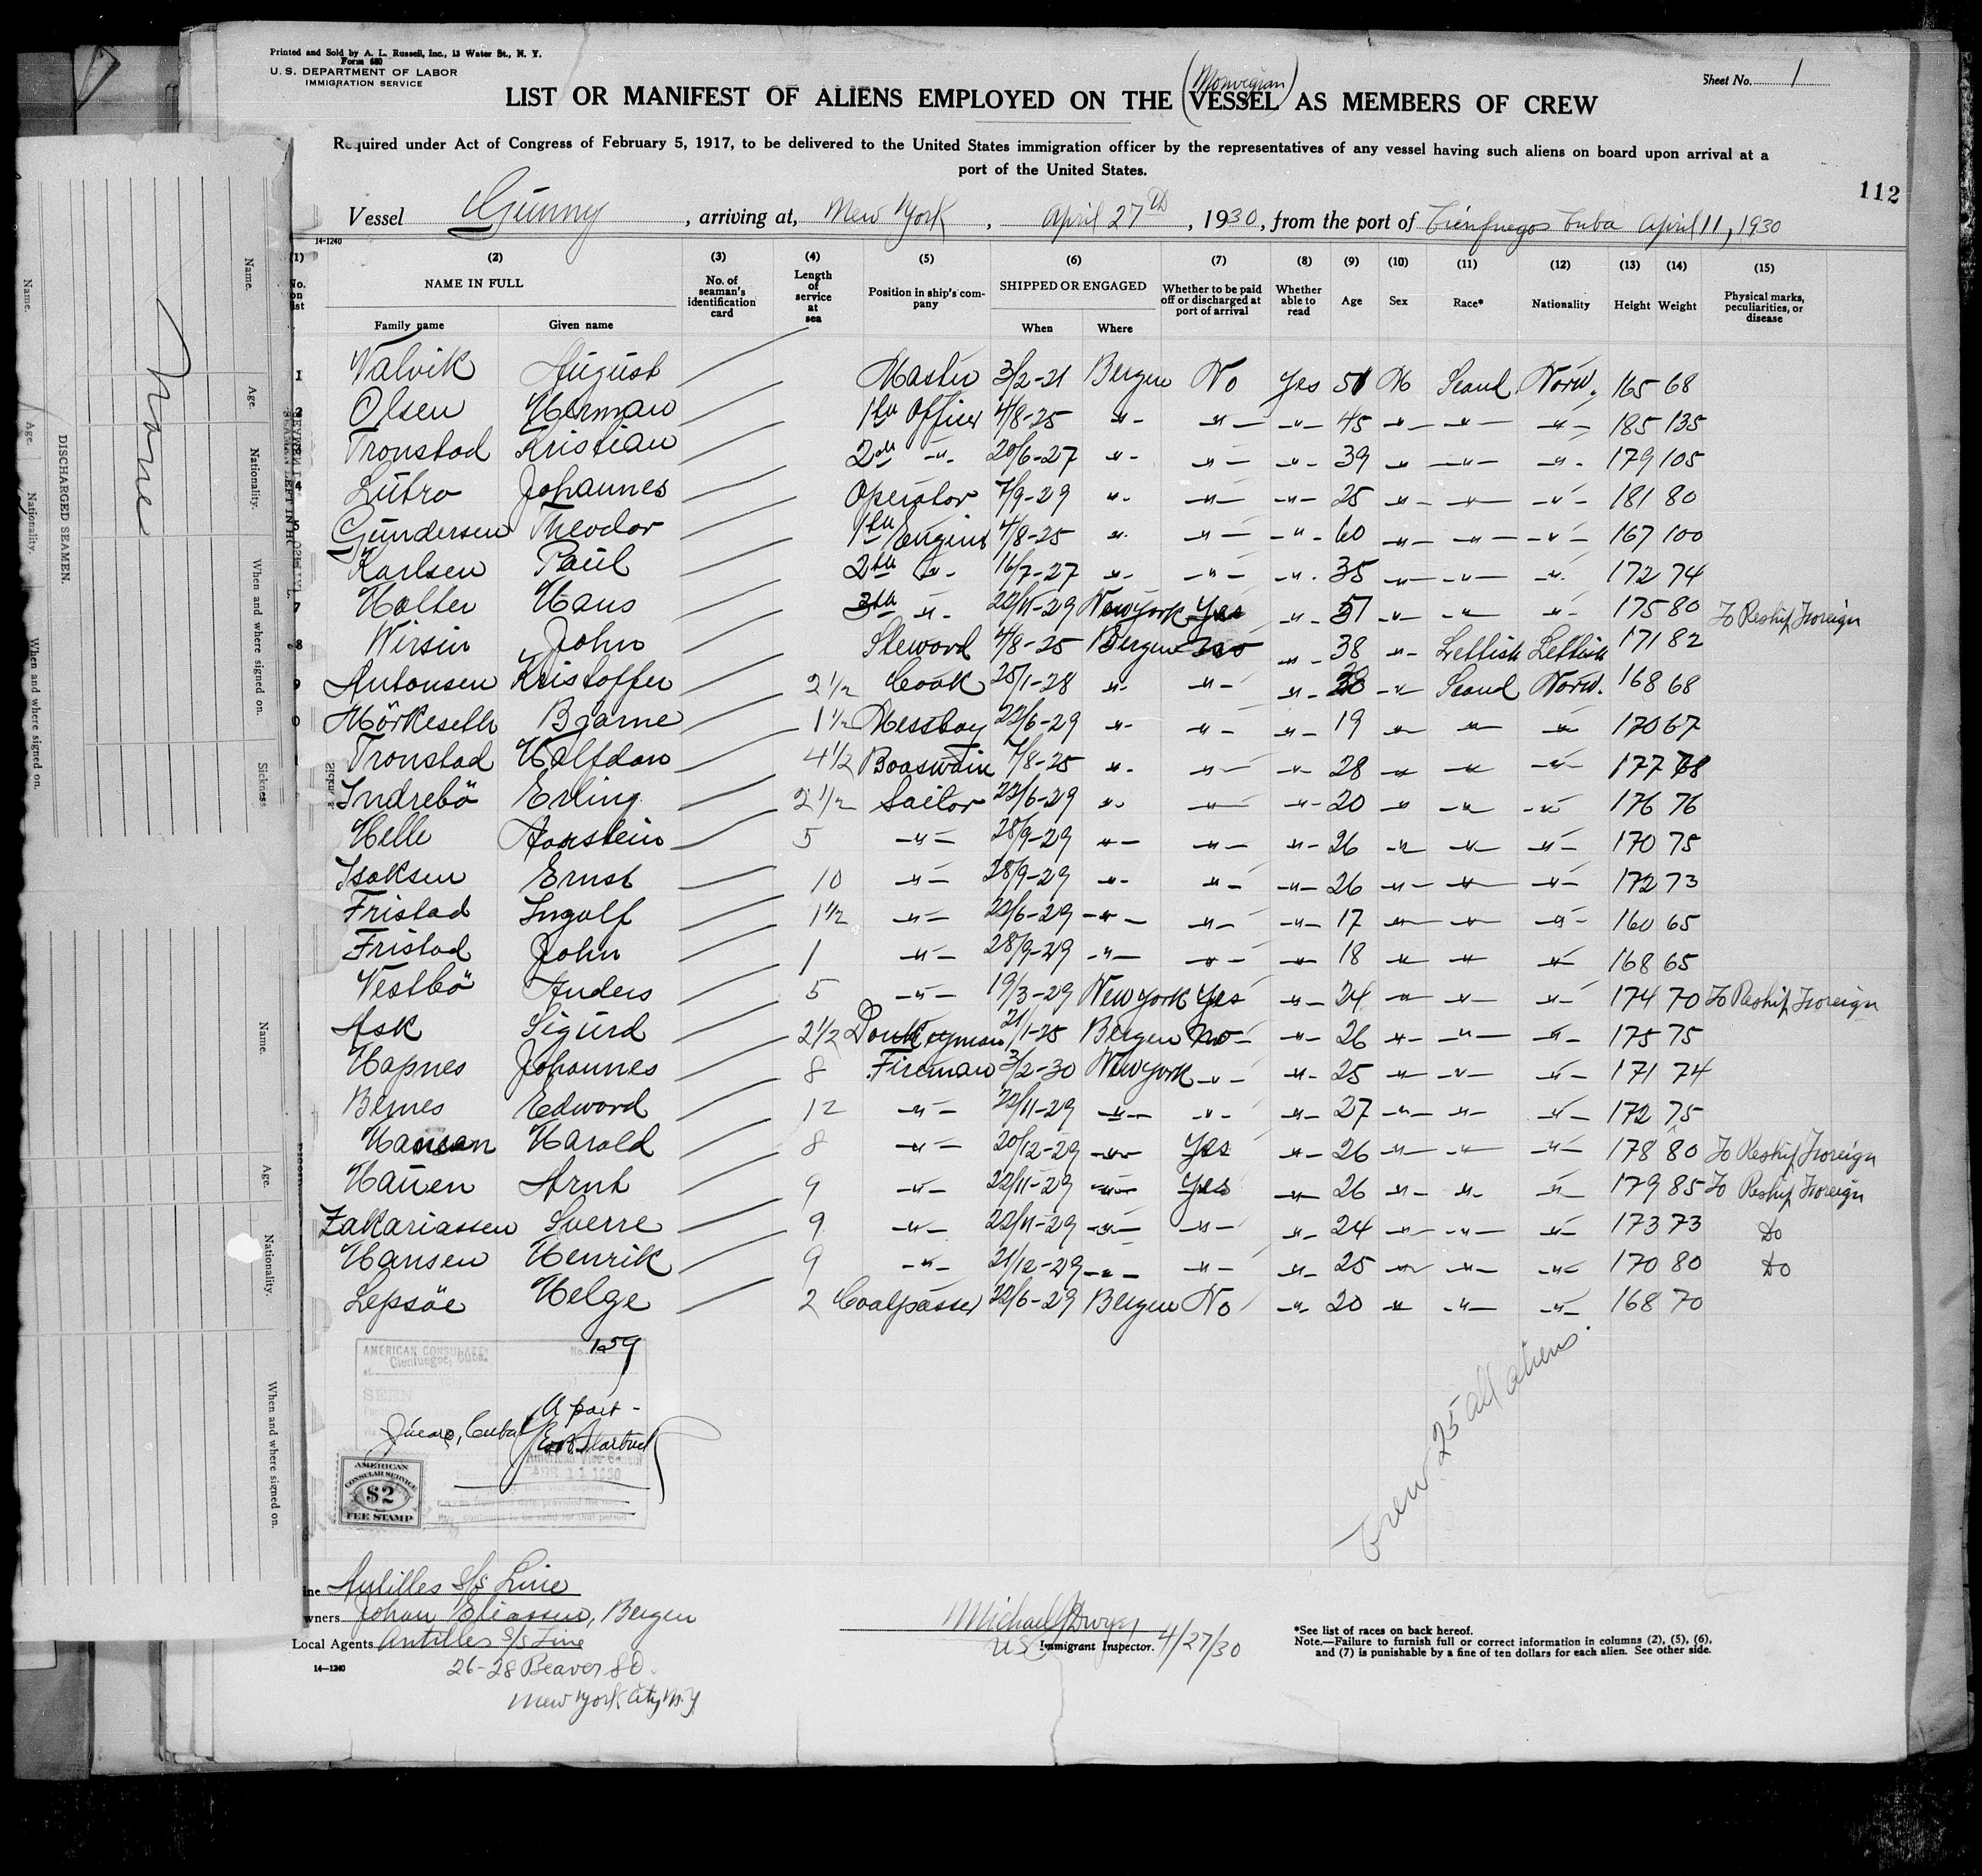 Printed and Sold by A. L. Russell, Inc., 13 Water St., N. Y.
Form 680
U. S. DEPARTMENT OF LABOR
IMMIGRATION SERVICE
Sheet No. 1
(Norwegian)
LIST OR MANIFEST OF ALIENS EMPLOYED ON THE VESSEL AS MEMBERS OF CREW
Required under Act of Congress of February 5, 1917, to be delivered to the United States immigration officer by the representatives of any vessel having such aliens on board upon arrival at a
port of the United States.
112
Vessel Gunny, arriving at, New York, April 27th, 1930, from the port of Cienfuegos Cuba April 11, 1930
14-1240
(1) (2) (3) (4) (5) (6) (7) (8) (9) (10) (11) (12) (13) (14) (15)
No. on list NAME IN FULL Family name Given name No. of seaman's identification card Length of service at sea Position in ship's company SHIPPED OR ENGAGED When Where Whether to be paid off or discharged at port of arrival Whether able to read Age Sex Race* Nationality Height Weight Physical marks, peculiarities, or disease
1 Valvik August Master 3/2-21 Bergen No Yes 51 M Scand Norw. 165 68
2 Olsen Herman 1ste Officer 4/8-25 -"- -"- -"- 45 -"- -"- -"- 185 135
Tronstad Kristian 2de -"- 20/6-27 -"- -"- -"- 39 -"- -"- -"- 179 105
4 Lutro Johannes Operator 7/9-29 -"- -"- -"- 25 -"- -"- -"- 181 80
5 Gundersen Theodor 1ste Engine 4/8-25 -"- -"- -"- 60 -"- -"- -"- 167 100
Karlsen Paul 2de -"- 16/7-27 -"- -"- -"- 35 -"- -"- -"- 172 74
7 Halter Hans 3de -"- 22/11-29 New York Yes -"- 51 -"- -"- -"- 175 80 To Reship Foreign
8 Wirsin John Steward 4/8-25 Bergen No -"- 38 -"- Lettish Lettish 171 82
9 Antonsen Kristoffer 2 1/2 Cook 25/1-28 -"- -"- -"- -"- Scand Norw. 168 68
0 Mörkeseth Bjarne 1 1/2 Messboy 22/6-29 -"- -"- -"- 19 -"- -"- -"- 170 67
1 Tronstad Halfdan 4 1/2 Boaswain 7/8-25 -"- -"- -"- 28 -"- -"- -"- 177 78
Indrebö Erling 2 1/2 Sailor 22/6-29 -"- -"- -"- 20 -"- -"- -"- 176 76
Helle Aarstein 5 -"- 28/9-29 -"- -"- -"- 26 -"- -"- -"- 170 75
Isaksen Ernst 10 -"- 28/9-29 -"- -"- -"- 26 -"- -"- -"- 172 73
Fristad Ingolf 1 1/2 -"- 22/6-29 -"- -"- -"- 17 -"- -"- -"- 160 65
Fristad John 1 -"- 28/9-29 -"- -"- -"- 18 -"- -"- -"- 168 65
Vestbö Anders 5 -"- 19/3-29 New York Yes -"- 24 -"- -"- -"- 174 70 To Reship Foreign
Ask Sigurd 2 1/2 Donkeyman 21/1-25 Bergen No -"- 26 -"- -"- -"- 175 75
Hapnes Johannes 8 Fireman 3/2-30 New York -"- -"- 25 -"- -"- -"- 171 74
Bemes Edward 12 -"- 22/11-29 -"- -"- -"- 27 -"- -"- -"- 172 75
Hansen Harald 8 -"- 20/12-29 -"- Yes -"- 26 -"- -"- -"- 178 80 To Reship Foreign
Hauen Arnt 9 -"- 22/11-29 -"- Yes -"- 26 -"- -"- -"- 179 85 To Reship Foreign
Zakariassen Sverre 9 -"- 22/11-29 -"- -"- -"- 24 -"- -"- -"- 173 73 Do
Hansen Henrik 9 -"- 21/12-29 -"- -"- -"- 25 -"- -"- -"- 170 80 Do
Lepsöe Helge 2 Coalpasser 22/6-29 Bergen No -"- 20 -"- -"- -"- 168 70
AMERICAN CONSULATE
No. 159
Cienfuegos, Cuba.
SEEN
Jucaro, Cuba
A port -
American Vice Consul
APR 11 1930
AMERICAN
CONSULAR SERVICE
$2
FEE STAMP
Crew 25 all aliens
ine Antilles S/S Line
wners Johan Eliassen, Bergen
Local Agents Antilles S/S Line
26-28 Beaver St.
New York City N.Y
14-1240
Michael J Dwyer
US Immigrant Inspector. 4/27/30
*See list of races on back hereof.
Note.—Failure to furnish full or correct information in columns (2), (5), (6),
and (7) is punishable by a fine of ten dollars for each alien. See other side.
None
DISCHARGED SEAMEN.
Name.
Age.
Nationality.
When and where signed on.
Sickness
Name.
Age.
Nationality.
When and where signed on.
Name.
Age.
Nationality.
When and where signed on.